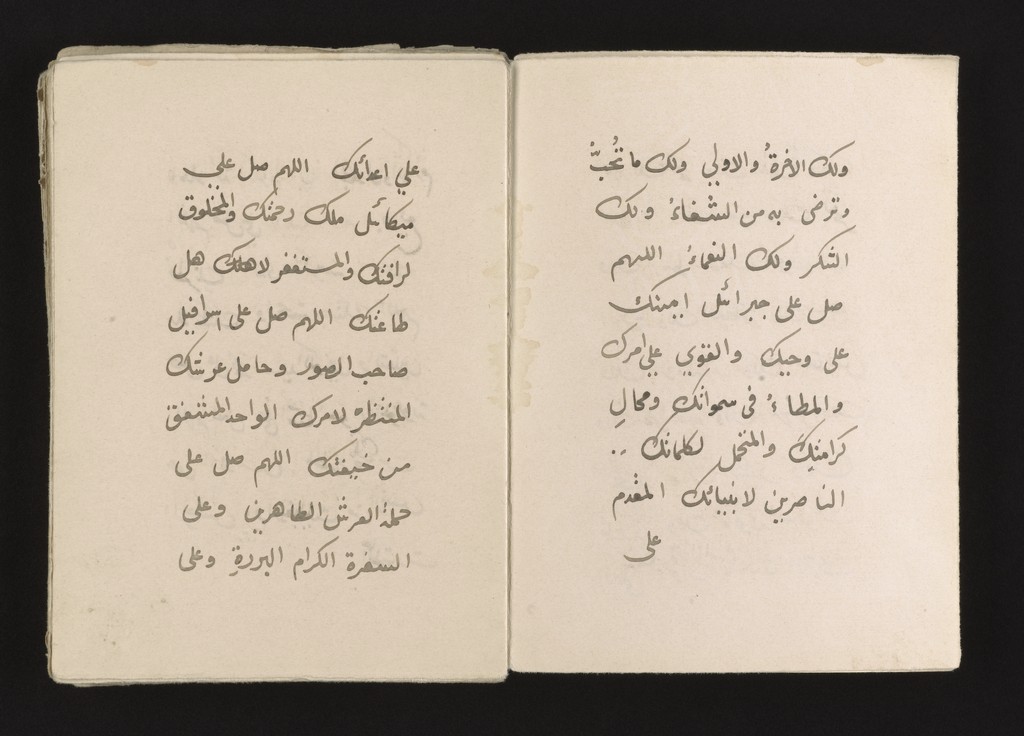 ولك الاخرةُ والاولي ولك ما تُحبُّ
وترضى به من الشفاءُ ولك
الشكر ولك النعماءُ اللهم
صل على جبرائل امينك
على وحيك والقوي علي امرك
والمطاءُ فى سمواتك ومحالِ
كرامتِك والمتحمل لكلماتك ..
الناصرين لانبيائك المقدم
على
علي اعدائك اللهم صل علي
ميكائل ملك رحمتك والمخلوق
لرافتك والمستغفر لاهلك هل
طاعتك اللهم صل على اسرافيل
صاحب الصور وحامل عرشك
المنتظره لامرك الواحد المشفق
من خيفتك اللهم صل على
حملة العرش الطاهرين وعلى
السفرة الكرام البررةِ وعلى